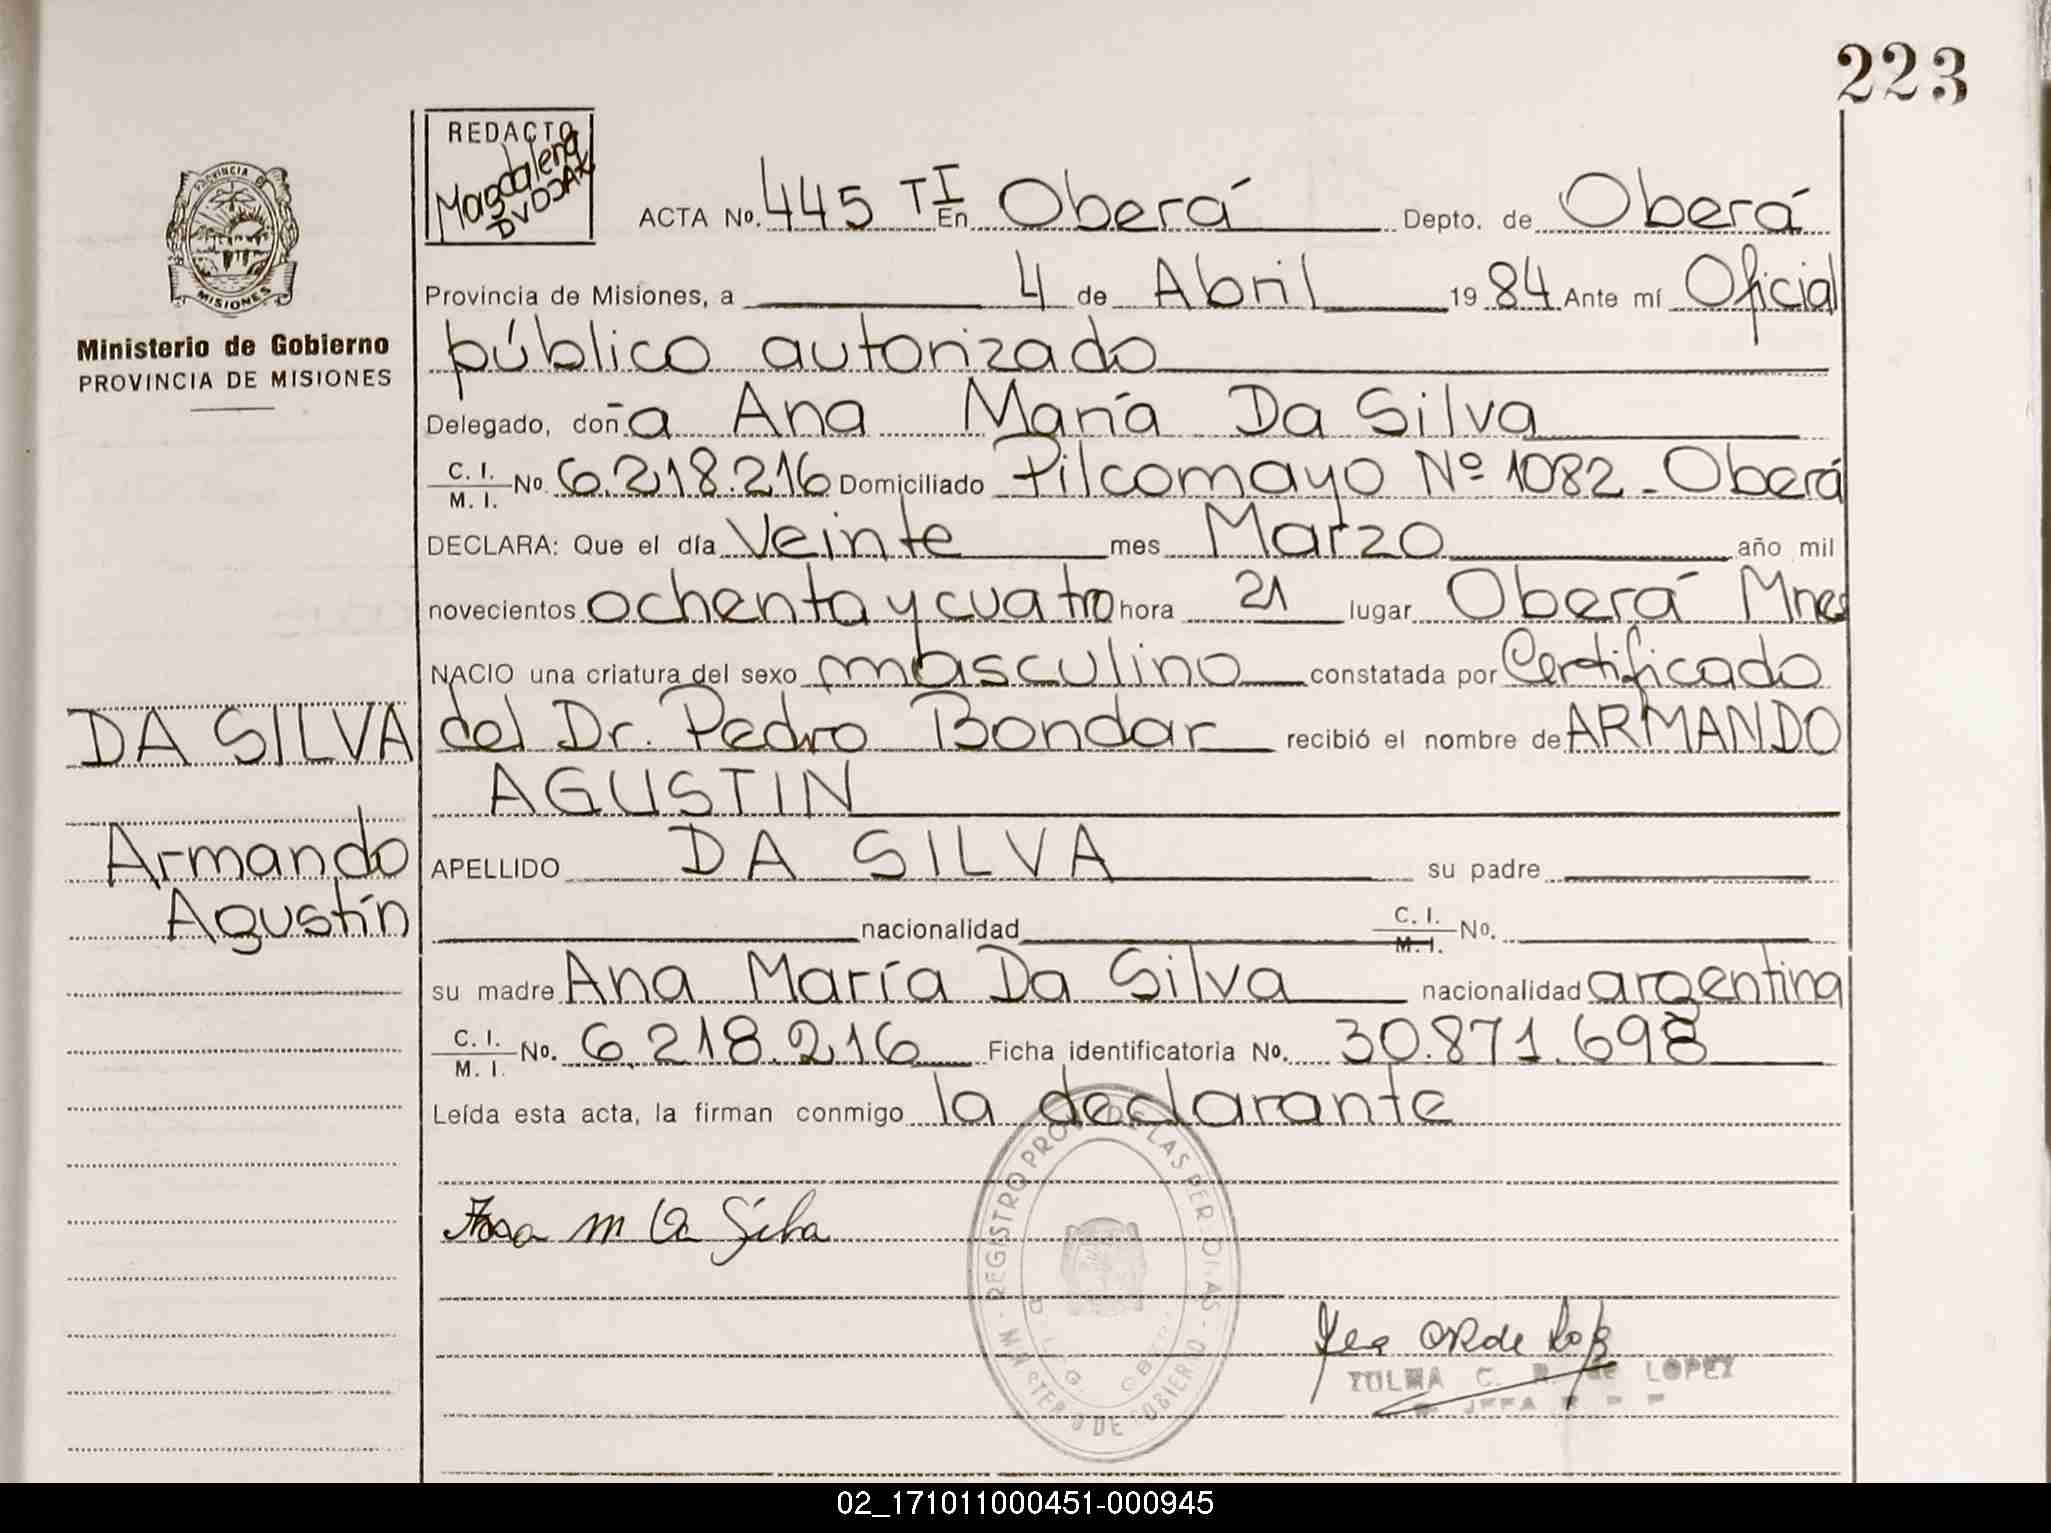 223
REDACTO
Magdalena
DVOJAK
PROVINCIA DE
MISIONES
Ministerio de Gobierno
PROVINCIA DE MISIONES
ACTA No. 445 TI En Oberá Depto. de Oberá
Provincia de Misiones, a 4 de Abril 1984 Ante mí Oficial
público autorizado
Delegado, doña Ana María Da Silva
C. I.
M. I. No. 6.218.216 Domiciliado Pilcomayo Nº 1082 - Oberá
DECLARA: Que el día Veinte mes Marzo año mil
novecientos ochenta y cuatro hora 21 lugar Oberá Mnes
NACIO una criatura del sexo masculino constatada por Certificado
del Dr. Pedro Bondar recibió el nombre de ARMANDO
AGUSTIN
APELLIDO DA SILVA su padre
nacionalidad C. I. M. I. No.
su madre Ana María Da Silva nacionalidad argentina
C. I.
M. I. No. 6.218.216 Ficha identificatoria No. 30.871.698
Leída esta acta, la firman conmigo la declarante
DA SILVA
Armando
Agustín
Ana M Da Silva
REGISTRO PROV. DE LAS PER
MINISTERIO DE GOBIERNO
C. R. de LOPEZ
02_171011000451-000945